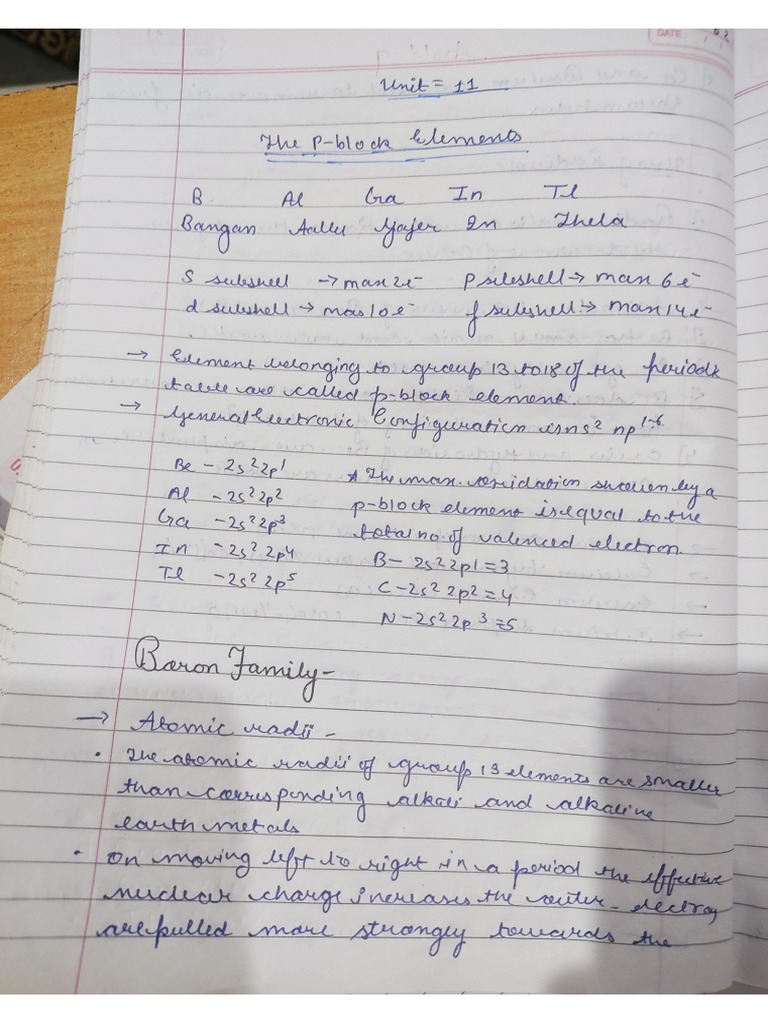 DATE:
Unit = 11
The P-block Elements
B. Al Ga In Tl
Bangan Aallu Gajer In Thela
S subshell → max 2e⁻ P subshell → max 6e⁻
d subshell → max 10e⁻ f subshell → max 14e⁻
→ Element belonging to group 13 to 18 of the periodic
table are called p-block element.
→ General Electronic Configuration is ns² np¹⁻⁶.
Be – 2s² 2p¹
Al – 2s² 2p²
Ga – 2s² 2p³
In – 2s² 2p⁴
Tl – 2s² 2p⁵
* The max. oxidation shown by a
p-block element is equal to the
total no. of valenced electron.
B – 2s² 2p1 = 3
C – 2s² 2p² = 4
N – 2s² 2p³ = 5
Baron Family –
→ Atomic radii –
• The atomic radii of group 13 elements are smaller
than corresponding alkali and alkaline
earth metals
• On moving left to right in a period the effective
nuclear charge increases the outer electron
are pulled more strongly towards the